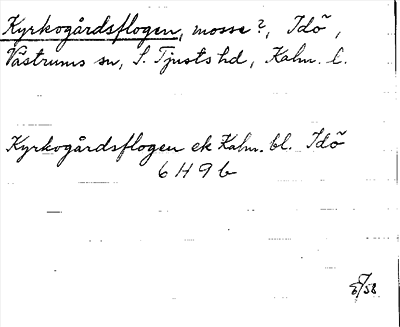 Kyrkogårdsflogen, mosse?, Idö,
Västrums sn, S. Tjusts hd, Kalm. l.
Kyrkogårdsflogen ek Kalm. bl. Idö
6 H 9 b